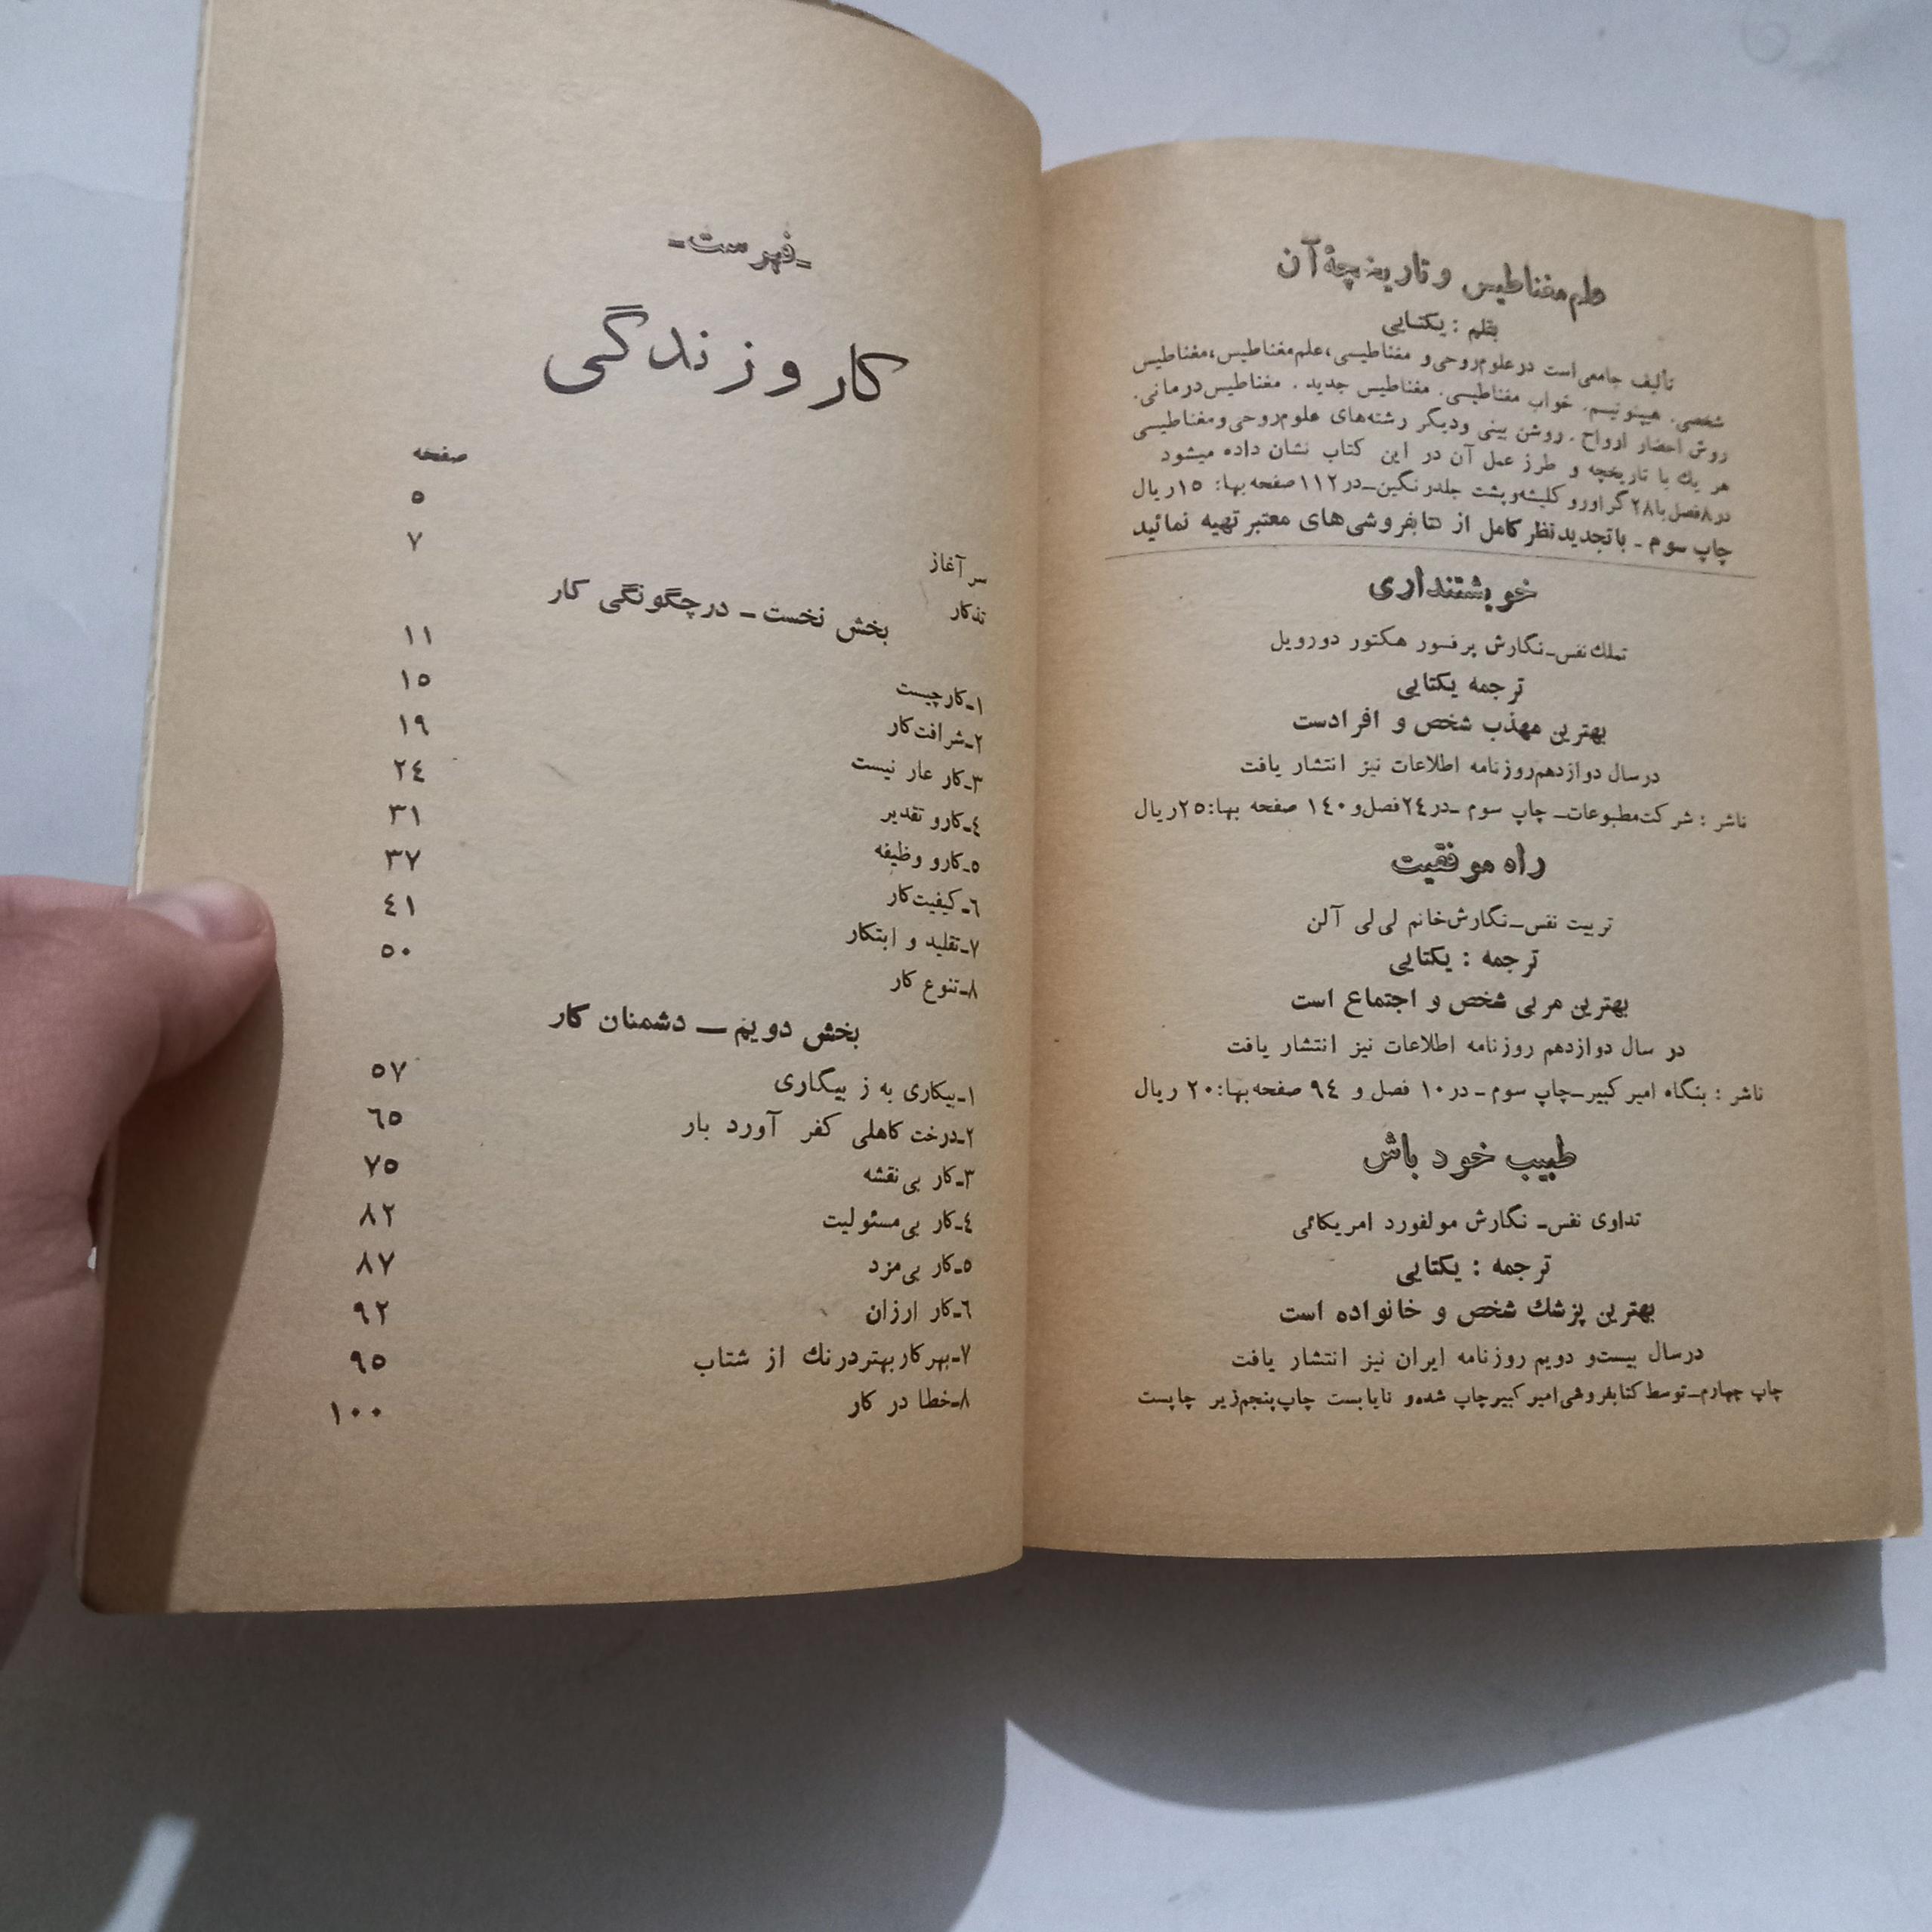 علم مغناطیس و تاریخچهٔ آن
بقلم : یکتایی
تألیف جامعی است در علوم روحی و مغناطیسی، علم مغناطیس، مغناطیس
شخصی. هیپنوتیسم. خواب مغناطیسی. مغناطیس جدید . مغناطیس درمانی.
روش احضار ارواح . روشن بینی ودیگر رشته‌های علوم روحی و مغناطیسی
هر یك با تاریخچه و طرز عمل آن در این کتاب نشان داده میشود
در ۸ فصل با ۲۸ گراور و کلیشه و پشت جلد رنگین ـ در ۱۱۲ صفحه بها: ۱۵ ریال
چاپ سوم ـ با تجدید نظر کامل از کتابفروشی‌های معتبر تهیه نمائید
خویشتنداری
تملك نفس ـ نگارش پرفسور هکتور دورویل
ترجمه یکتایی
بهترین مهذب شخص و افرادست
در سال دوازدهم روزنامه اطلاعات نیز انتشار یافت
ناشر : شرکت مطبوعات ـ چاپ سوم ـ در ۲۴ فصل و ۱۴۰ صفحه بها: ۲۵ ریال
راه موفقیت
تربیت نفس ـ نگارش خانم لی لی آلن
ترجمه : یکتایی
بهترین مربی شخص و اجتماع است
در سال دوازدهم روزنامه اطلاعات نیز انتشار یافت
ناشر : بنگاه امیر کبیر ـ چاپ سوم ـ در ۱۰ فصل و ۹۴ صفحه بها: ۲۰ ریال
طبیب خود باش
تداوی نفس ـ نگارش مولفورد امریکائی
ترجمه : یکتایی
بهترین پزشك شخص و خانواده است
در سال بیست و دویم روزنامه ایران نیز انتشار یافت
چاپ چهارم ـ توسط کتابفروشی امیر کبیر چاپ شده و نایابست چاپ پنجم زیر چاپست
ـ فهرست ـ
کار و زندگی
صفحه
سر آغاز ۵
تذکار ۷
بخش نخست ـ در چگونگی کار
۱ـ کار چیست ۱۱
۲ـ شرافت کار ۱۵
۳ـ کار عار نیست ۱۹
٤ـ کار و تقدیر ۲٤
۵ـ کار و وظیفه ۳۱
٦ـ کیفیت کار ۳۷
۷ـ تقلید و ابتکار ٤۱
۸ـ تنوع کار ۵۰
بخش دویم ـ دشمنان کار
۱ـ بیکاری به ز بیگاری ۵۷
۲ـ درخت کاهلی کفر آورد بار ٦۵
۳ـ کار بی نقشه ۷۵
٤ـ کار بی مسئولیت ۸۲
۵ـ کار بی مزد ۸۷
٦ـ کار ارزان ۹۲
۷ـ بهر کار بهتر درنك از شتاب ۹۵
۸ـ خطا در کار ۱۰۰